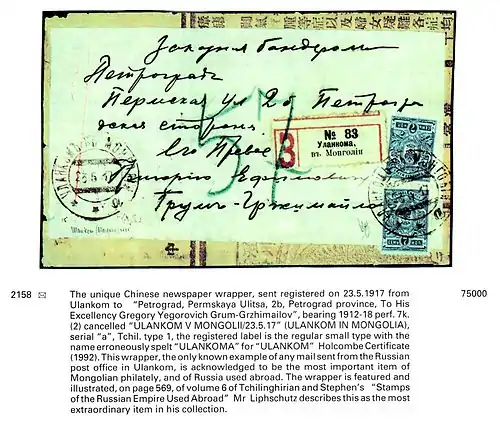 Заказная бандероль
Петроград
Пермская ул 2б Петрогра
дская сторона.
Его Превос
Григорию Ефимовичу
Грумъ-Гржимайло
57
З
№ 83
Уланкома.
въ Монголіи
7
7
2158
The unique Chinese newspaper wrapper, sent registered on 23.5.1917 from
Ulankom to "Petrograd, Permskaya Ulitsa, 2b, Petrograd province, To His
Excellency Gregory Yegorovich Grum-Grzhimailov", bearing 1912-18 perf. 7k.
(2) cancelled "ULANKOM V MONGOLII/23.5.17" (ULANKOM IN MONGOLIA),
serial "a", Tchil. type 1, the registered label is the regular small type with the
name erroneously spelt "ULANKOMA" for "ULANKOM" Holcombe Certificate
(1992). This wrapper, the only known example of any mail sent from the Russian
post office in Ulankom, is acknowledged to be the most important item of
Mongolian philately, and of Russia used abroad. The wrapper is featured and
illustrated, on page 569, of volume 6 of Tchilinghirian and Stephen's "Stamps
of the Russian Empire Used Abroad" Mr Liphschutz describes this as the most
extraordinary item in his collection.
75000